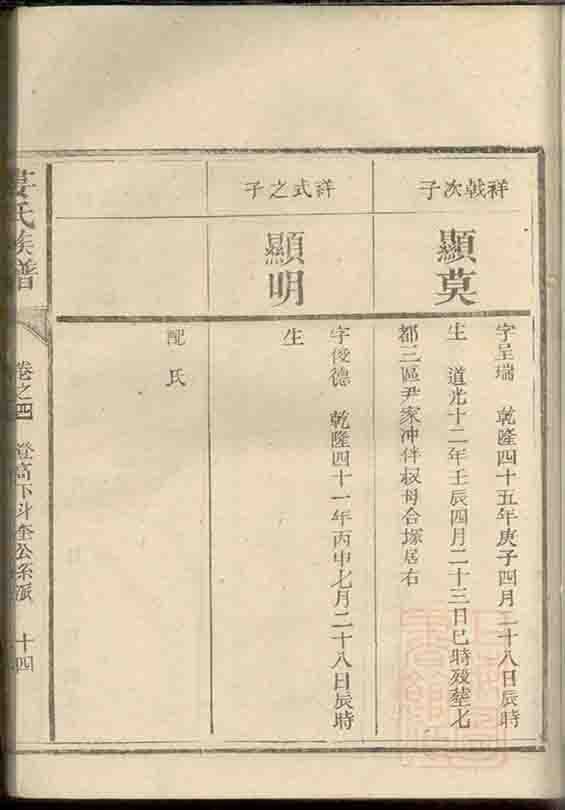 祥戟次子
顯莫
字呈瑞　乾隆四十五年庚子四月二十八日辰時
生　道光十二年壬辰四月二十三日巳時歿塟七
都三區尹家冲伴叔母合塚居右
祥式之子
顯明
字俊德　乾隆四十一年丙申七月二十八日辰時
生
配氏
氏族譜
卷之四　登高下斗奎公系派　十四